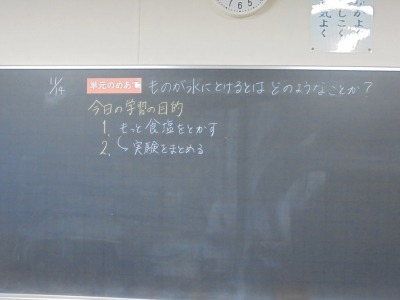 11/14 単元のめあて ものが水にとけるとは どのようなことか?
今日の学習の目的
1. もっと食塩をとかす
2. 実験をまとめる
かよく
しこく
気よく